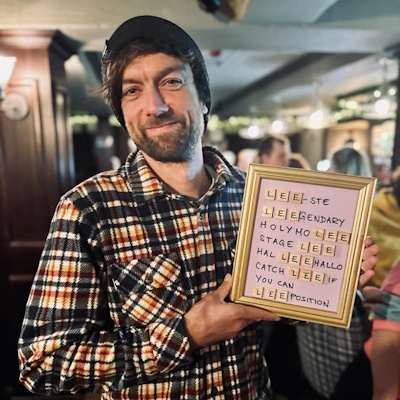 LEE-STE
LEEGENDARY
HOLYMOLEE
STAGE LEE
HAL LEE HALLO
CATCH LEE IF
YOU CAN
LEEPOSITION